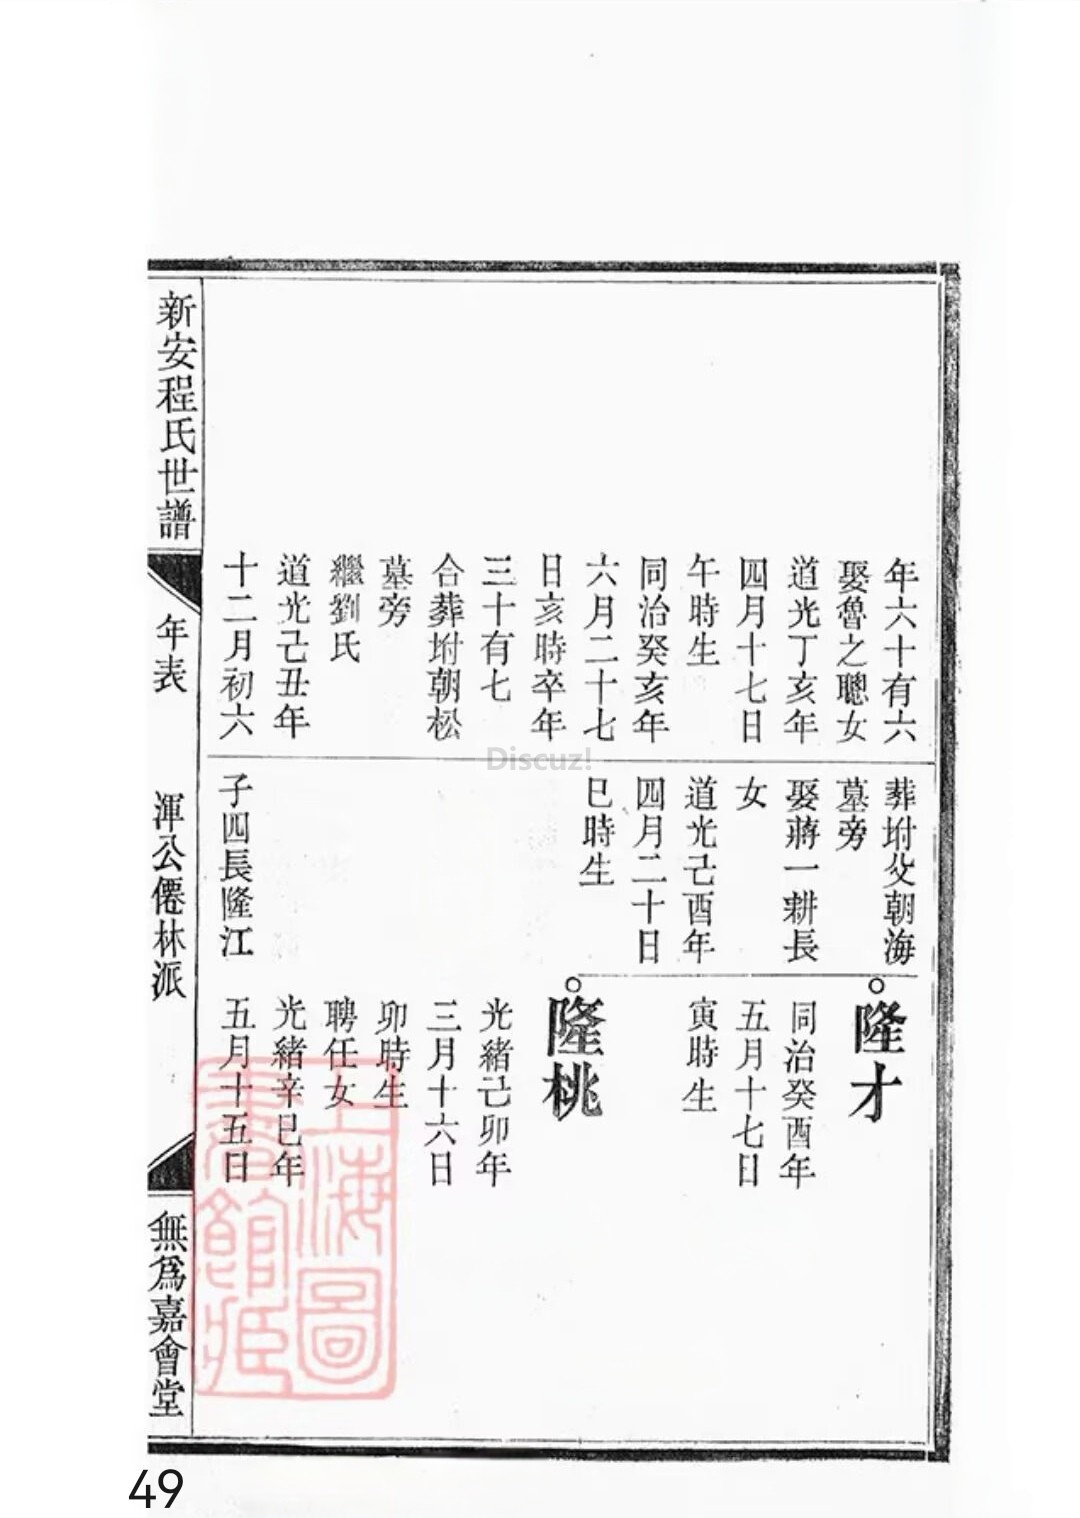 年六十有六
娶魯之聰女
道光丁亥年
四月十七日
午時生
同治癸亥年
六月二十七
日亥時卒年
三十有七
合葬坿朝松
墓旁
繼劉氏
道光己丑年
十二月初六
葬坿父朝海
墓旁
娶蔣一耕長
女
道光己酉年
四月二十日
巳時生
子四長隆江
隆才
同治癸酉年
五月十七日
寅時生
隆桃
光緒己卯年
三月十六日
卯時生
聘任女
光緒辛巳年
五月十五日
新安程氏世譜
年表
渾公僊林派
無爲嘉會堂
上海圖
書館藏
Discuz!
49